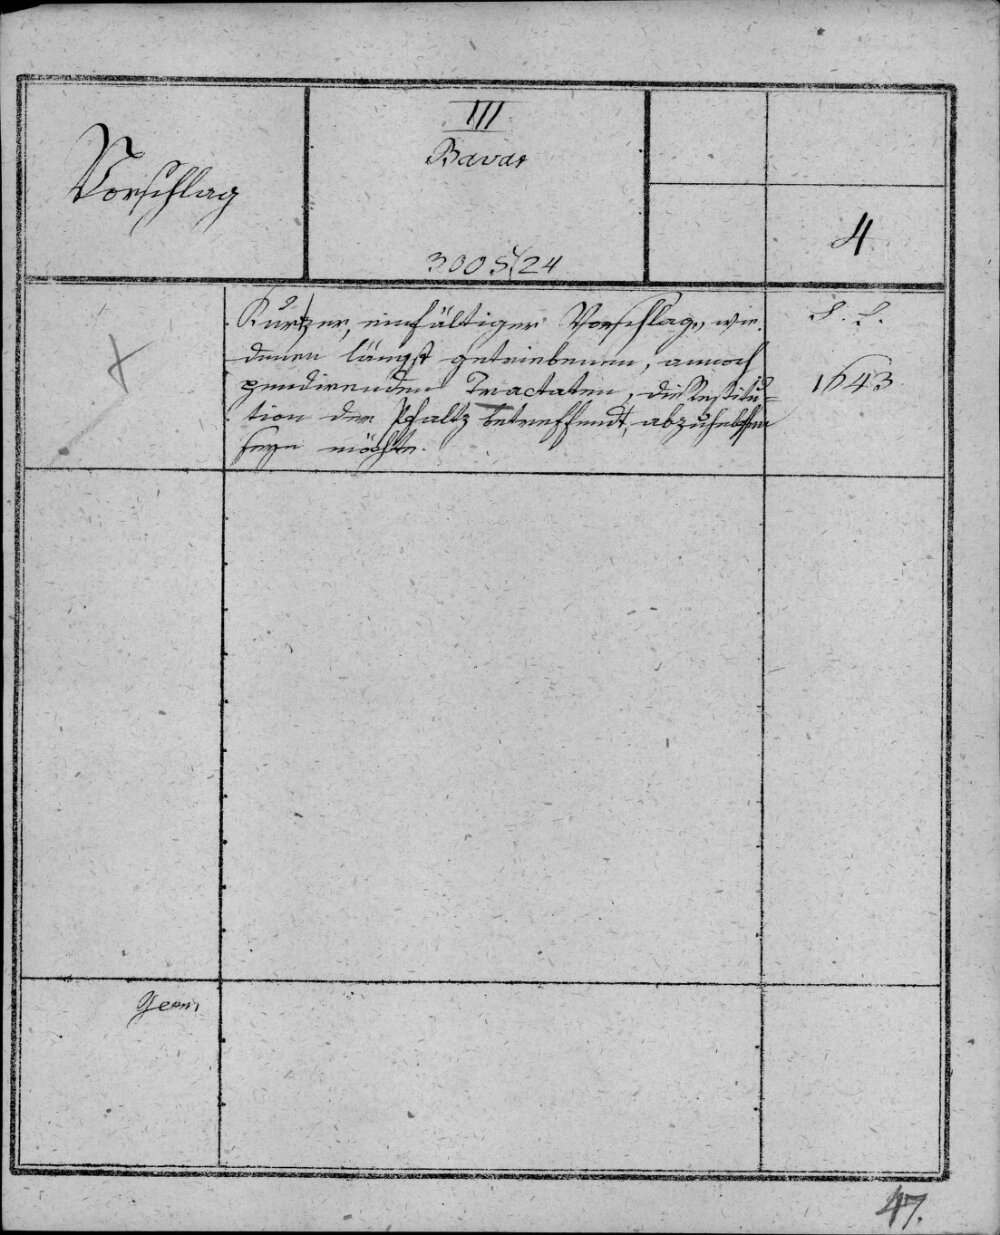 Vorschlag
III
Bavar
3005/24
4
Kurtzer, einfältiger Vorschlag, wie
denen längst getriebenen, annoch
pendirenden Tractaten, die Restitu=
tion der Pfaltz betreffendt, abzuhelffen
seyn möchte.
S. L.
1643
X
Germ.
47.